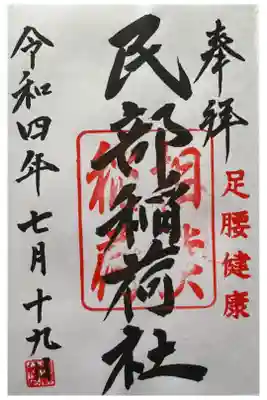 奉拝
足腰健康
民部稲荷社
令和四年七月十九日